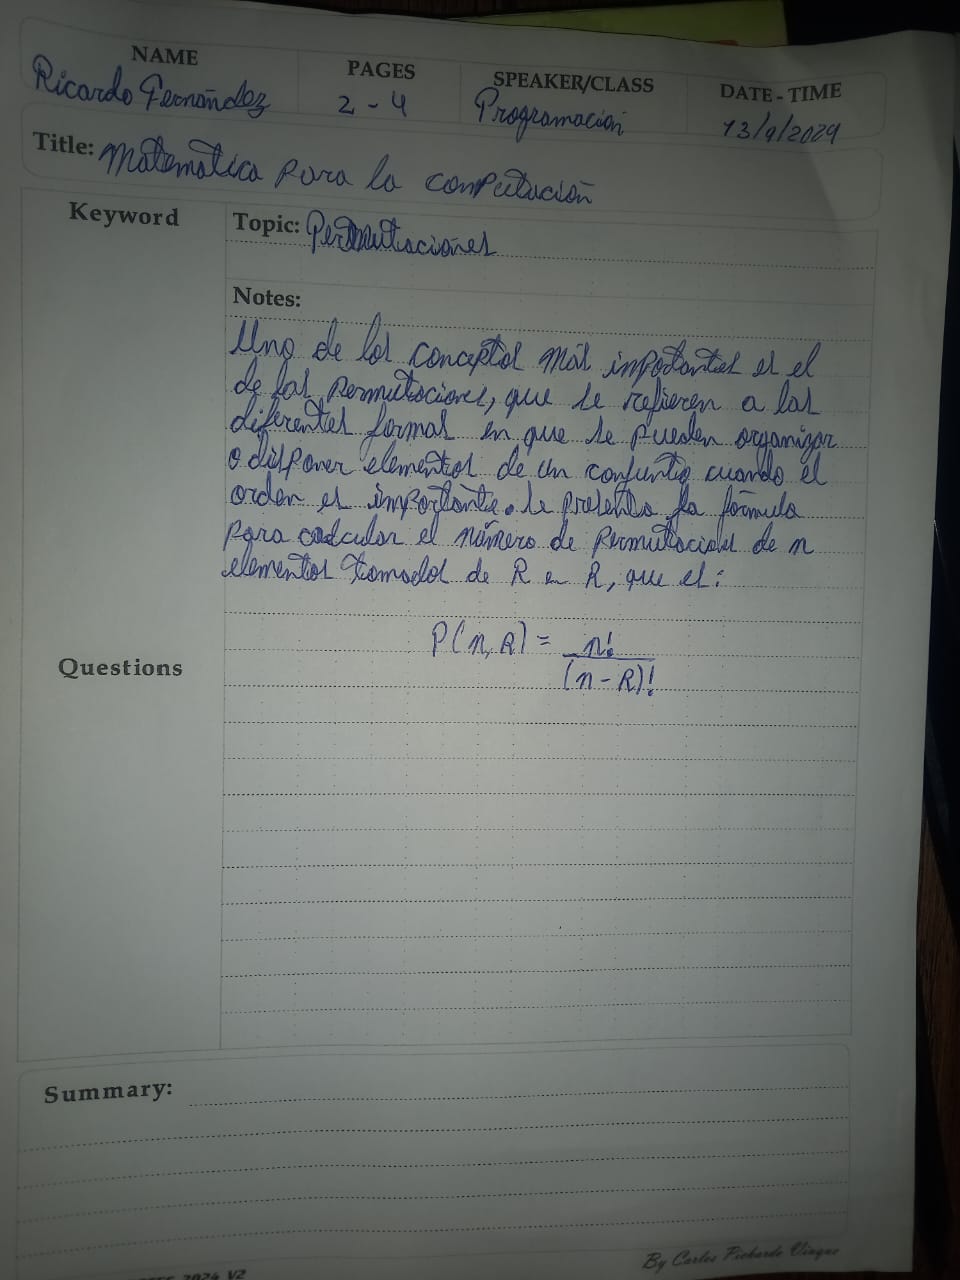 NAME
Ricardo Fernández
PAGES
2 - 4
SPEAKER/CLASS
Programación
DATE - TIME
13/9/2024
Title: Matematica para la computación
Keyword
Topic: Permutaciones
Notes:
Uno de los conceptos más importantes es el
de las permutaciones, que se refieren a las
diferentes formas en que se pueden organizar
o disponer elementos de un conjunto cuando el
orden es importante. Se presenta la fórmula
para calcular el número de permutaciones de n
elementos tomados de R en R, que es:
P(n, R) = n!
(n - R)!
Questions
Summary:
By Carlos Pichardo Viuque
2024 V2